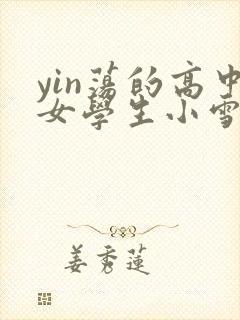 yin蕩的高中
女學生小雪
姜秀蓮